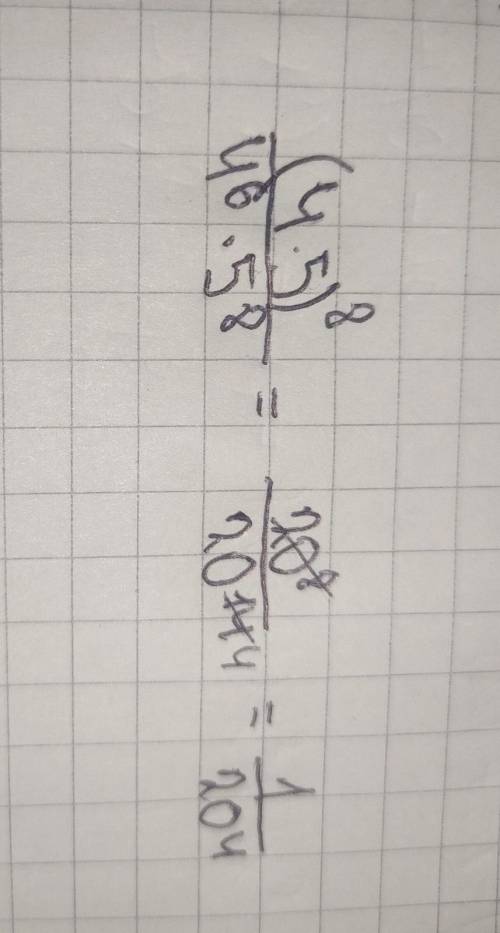 (4·5)⁸ / 4⁶·5⁸ = 20⁸ / 20¹⁴ 4 = 1 / 20⁴